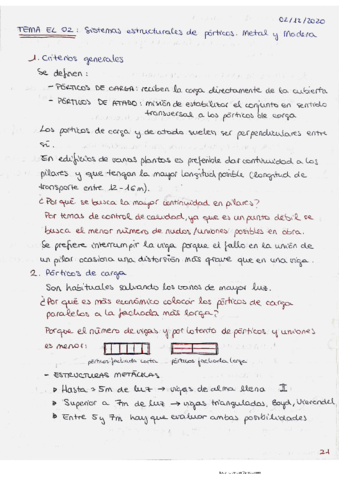 02/12/2020
TEMA EL 02: Sistemas estructurales de pórticos. Metal y Madera
1. Criterios generales
Se definen:
- PÓRTICOS DE CARGA: reciben la carga directamente de la cubierta
- PÓRTICOS DE ATADO: misión de estabilizar el conjunto en sentido
transversal a los pórticos de carga
Los porticos de carga y de atado suelen ser perpendiculares entre
sí.
En edificios de varias plantas es preferible dar continuidad a los
pilares y que tengan la mayor longitud posible (longitud de
transporte entre 12-16m).
¿Por qué se busca la mayor continuidad en pilares?
Por temas de control de calidad, ya que es un punto débil se
busca el menor número de nudos/uniones posibles en obra.
Se prefiere interrumpir la viga porque el fallo en la unión de
un pilar ocasiona una distorsión más grave que en una viga.
2. Pórticos de carga
Son habituales salvando los vanos de mayor luz.
¿Por qué es más económico colocar los pórticos de carga
paralelos a la fachada más larga?
Porque el número de vigas y por lo tanto de pórticos y uniones
es menor:
pórticos fachada corta pórticos fachada larga
- ESTRUCTURAS METÁLICAS
Hasta 5m de luz → vigas de alma llena I
Superior a 7m de luz → vigas trianguladas, Boyd, Vierendel
Entre 5 y 7m hay que evaluar ambas posibilidades
21